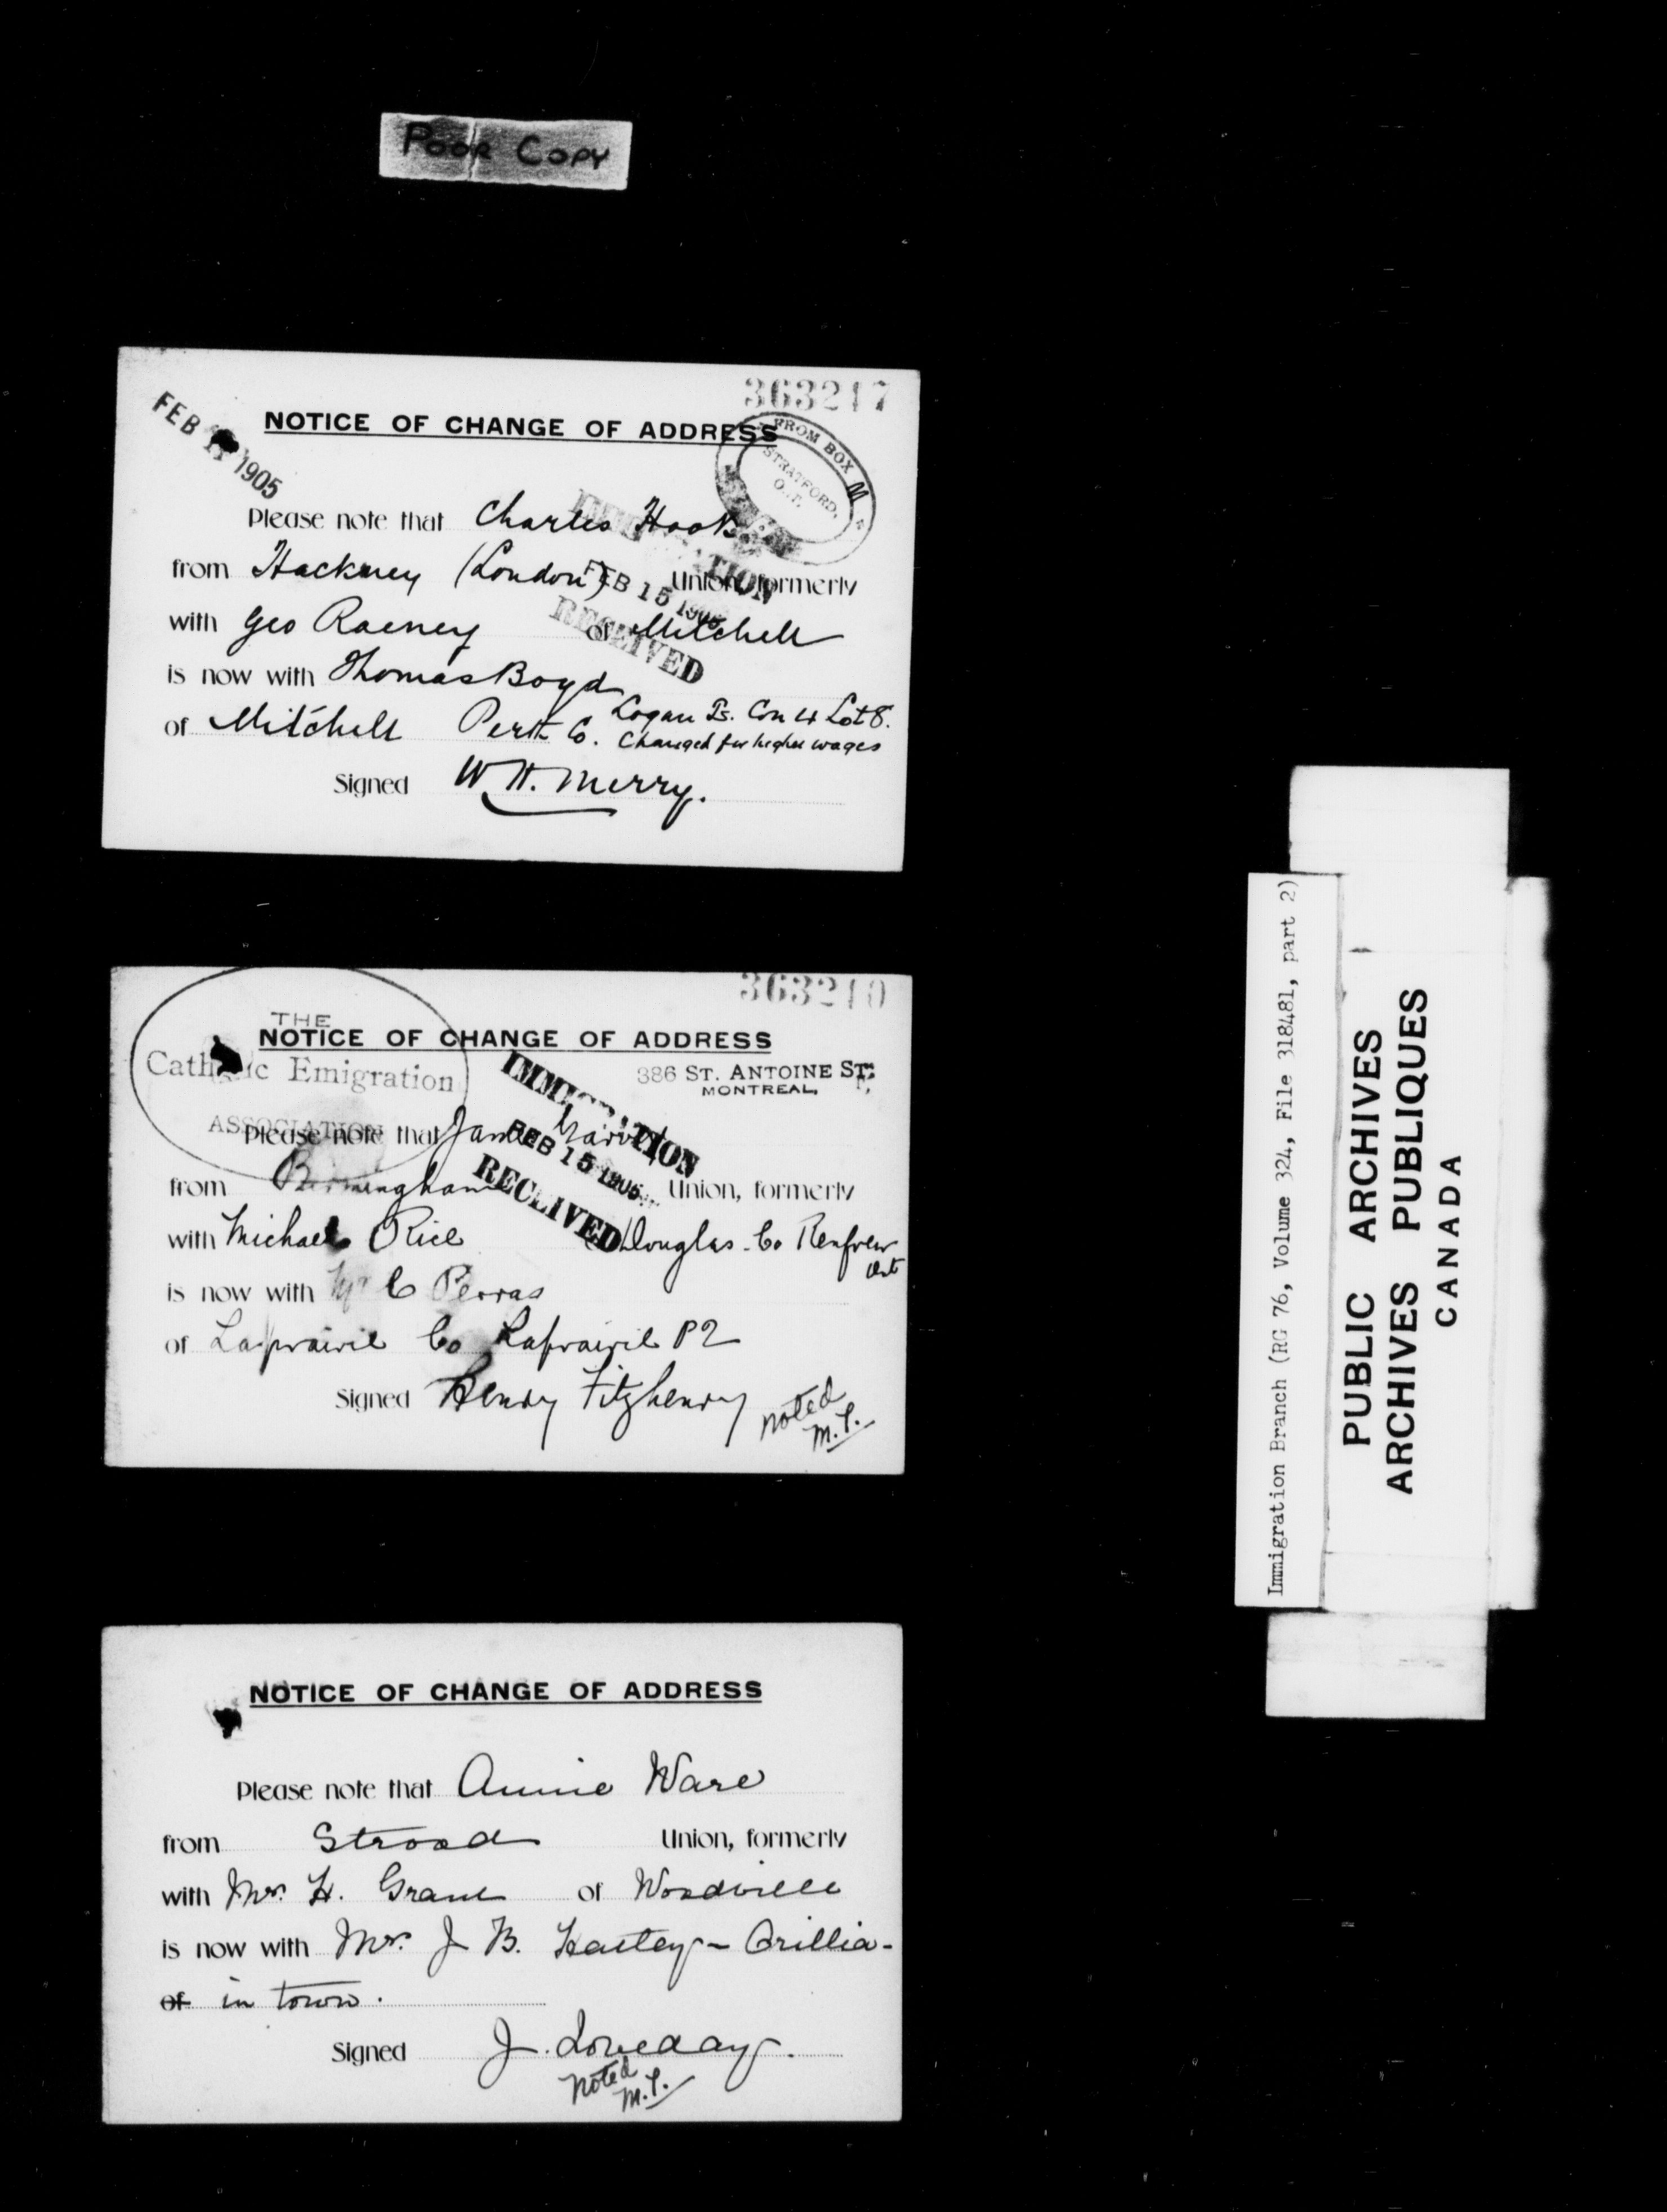 POOR COPY
363217
FEB 1905
NOTICE OF CHANGE OF ADDRESS
FROM BOX M
STRATFORD,
Please note that Charles Hook
IMMIGRATION
FEB 15 1905
RECEIVED
from Hackney (London) Union, formerly
with Geo Raeney of Mitchell
is now with Thomas Boyd
Logan Ts. Con 4 Lot 8.
of Mitchell Perth Co. Changed for higher wages
Signed W. H. Merry.
363210
THE
NOTICE OF CHANGE OF ADDRESS
Catholic Emigration
386 ST. ANTOINE ST.
MONTREAL,
ASSOCIATION
IMMIGRATION
FEB 15 1905
RECEIVED
Please note that James
from Birmingham Union, formerly
with Michael Rice Douglas Co Renfrew
Ont
is now with Mr C Perras
of Laprairie Co Laprairie P2
Signed Henry Fitzhenry
noted
NOTICE OF CHANGE OF ADDRESS
Please note that Annie Ware
from Strood Union, formerly
with Mrs. H. Grant of Woodville
is now with Mrs. J. B. Hartley - Orillia -
of in town.
Signed J. Loveday.
noted
Immigration Branch (RG 76, Volume 324, File 318481, part 2)
PUBLIC ARCHIVES
ARCHIVES PUBLIQUES
CANADA